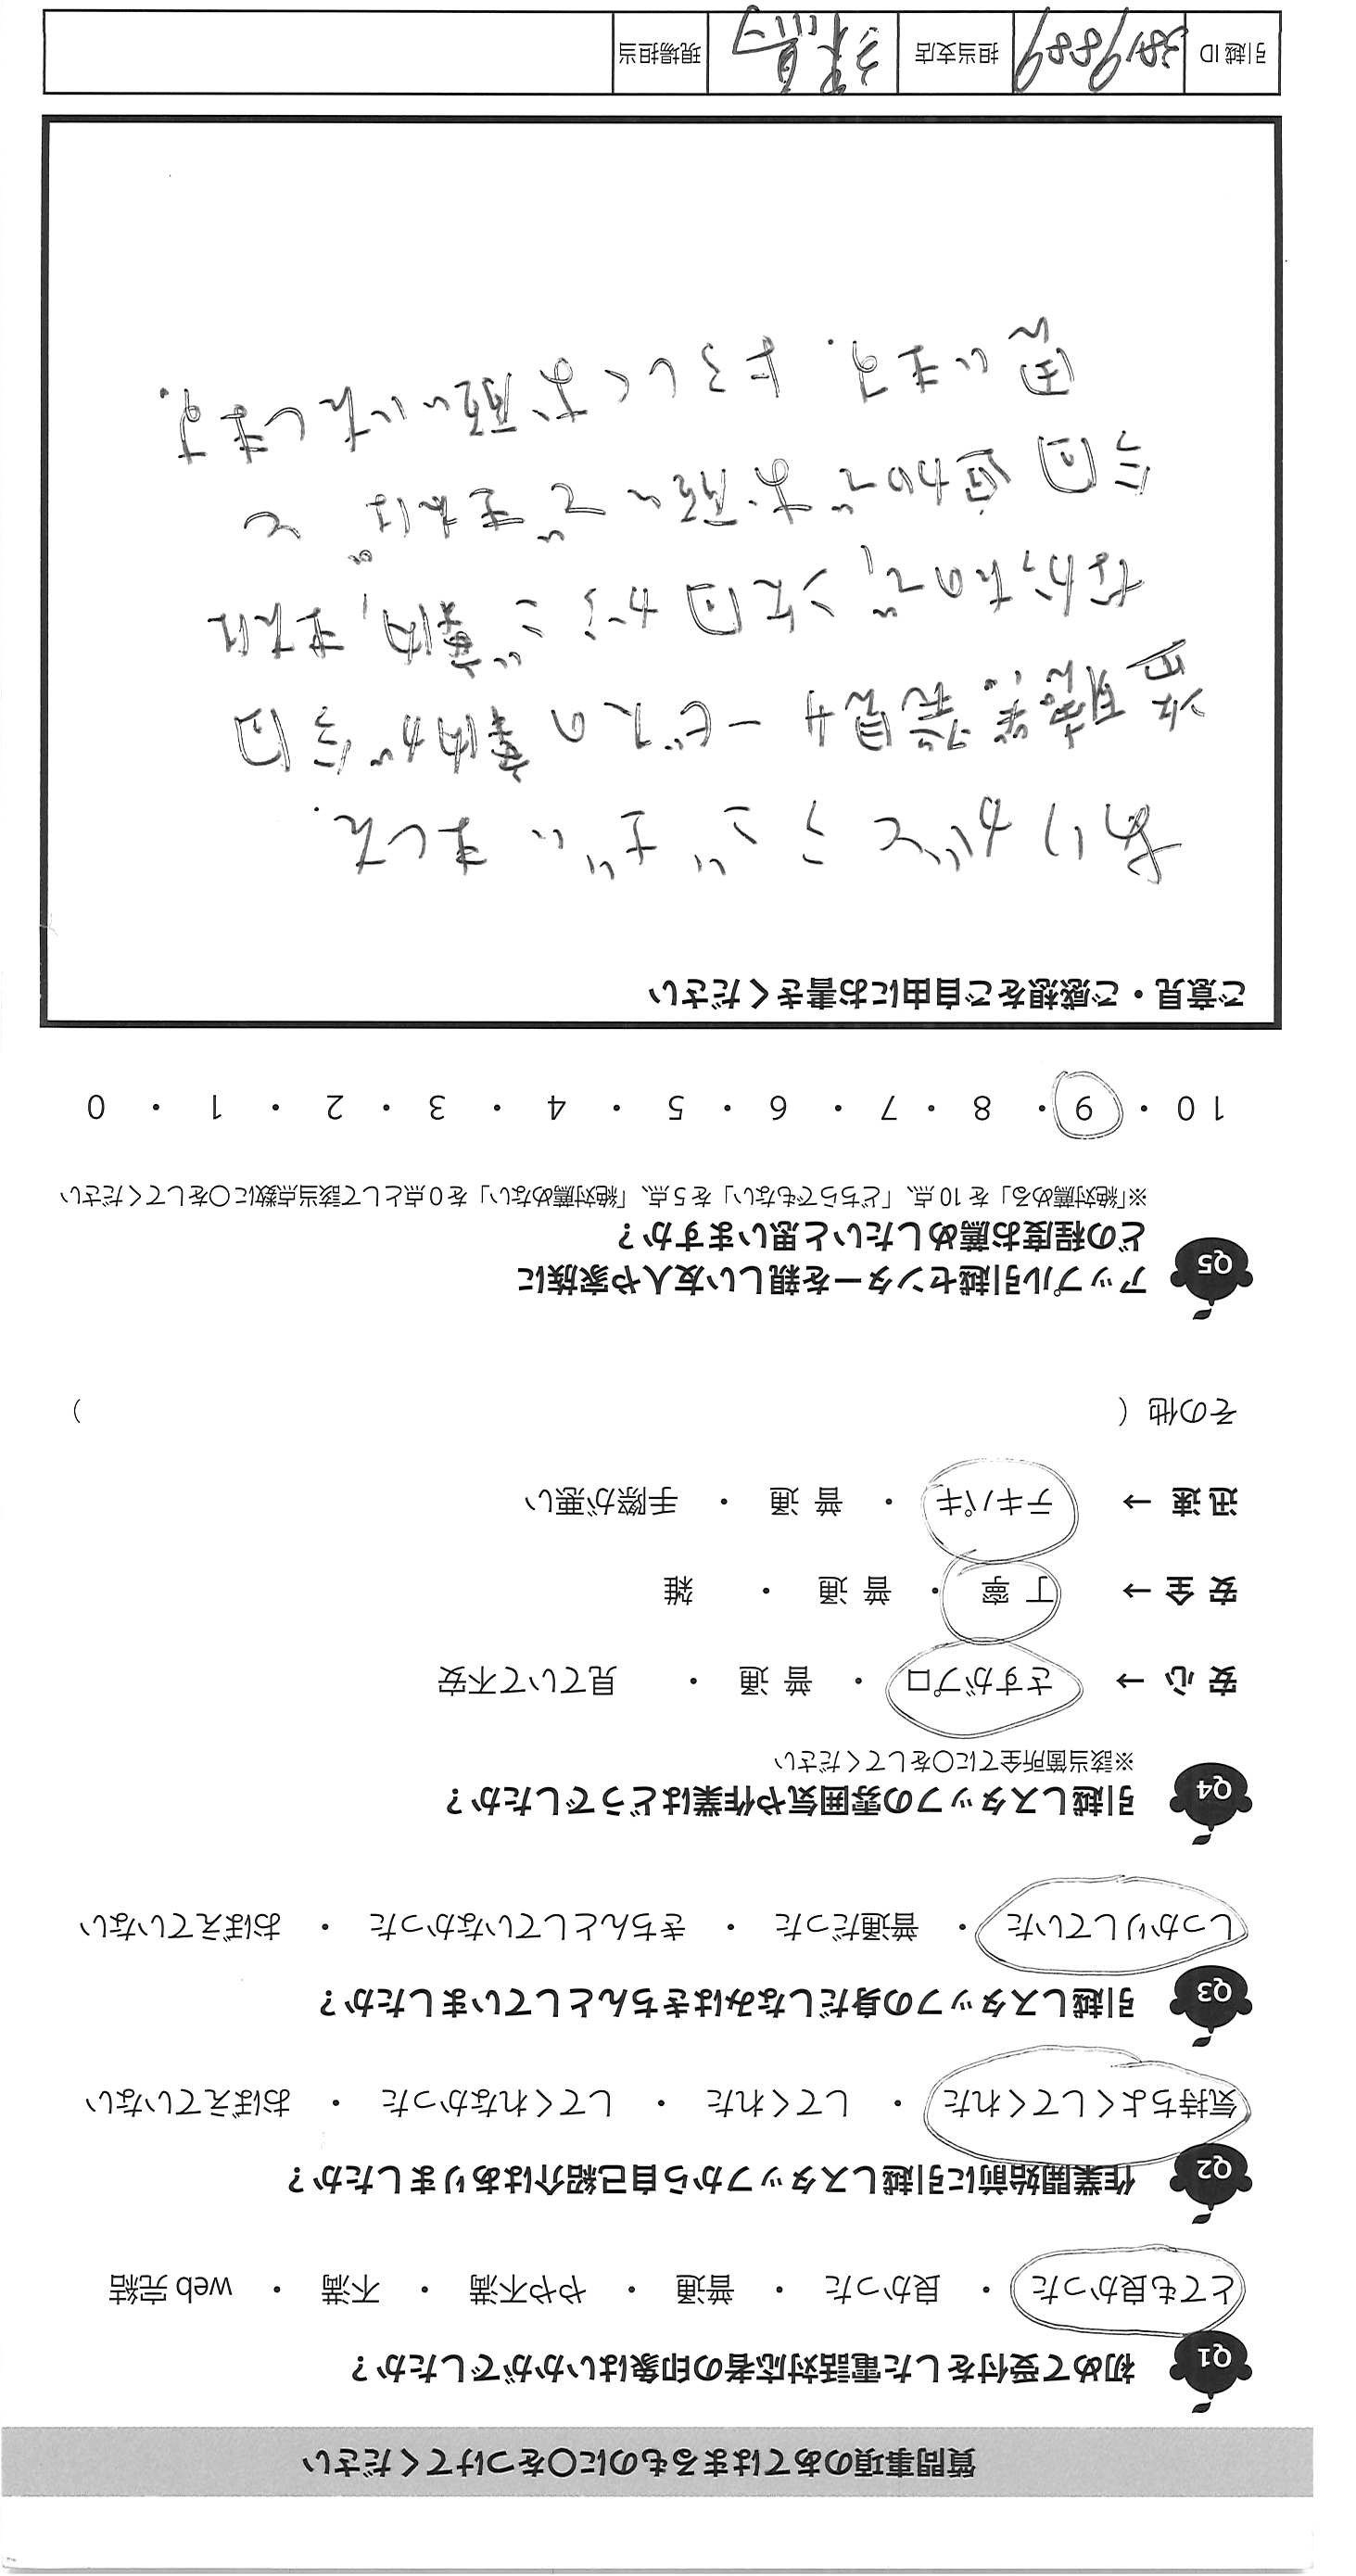 質問事項のあてはまるものに〇をつけてください
Q1 初めて受付をした電話対応者の印象はいかがでしたか？
とても良かった ・ 良かった ・ 普通 ・ やや不満 ・ 不満 ・ web 完結
Q2 作業開始前に引越しスタッフから自己紹介はありましたか？
気持ちよくしてくれた ・ してくれた ・ してくれなかった ・ おぼえていない
Q3 引越しスタッフの身だしなみはきちんとしていましたか？
しっかりしていた ・ 普通だった ・ きちんとしていなかった ・ おぼえていない
Q4 引越しスタッフの雰囲気や作業はどうでしたか？
※該当箇所全てに〇をしてください
安 心 → さすがプロ ・ 普 通 ・ 見ていて不安
安 全 → 丁 寧 ・ 普 通 ・ 雑
迅 速 → テキパキ ・ 普 通 ・ 手際が悪い
その他（ ）
Q5 アップル引越センターを親しい友人や家族に
どの程度お薦めしたいと思いますか？
※「絶対薦める」を 10 点、「どちらでもない」を 5 点、「絶対薦めない」を 0 点として該当点数に〇をしてください
10 ・ 9 ・ 8 ・ 7 ・ 6 ・ 5 ・ 4 ・ 3 ・ 2 ・ 1 ・ 0
ご意見・ご感想をご自由にお書きください
ありがとうございました.
盗聴器発見サービスの案内が今回
なかったので、次回からご案内、または
今回改めてお願いできれば と
思います. よろしくお願いいたします.
引越 ID 3819889 担当支店 練馬 現場担当